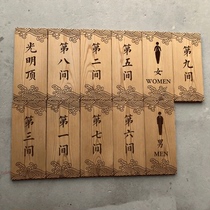 光明顶
第八间
第二间
第五间
女
WOMEN
第九间
第三间
第一间
第七间
第六间
男
MEN